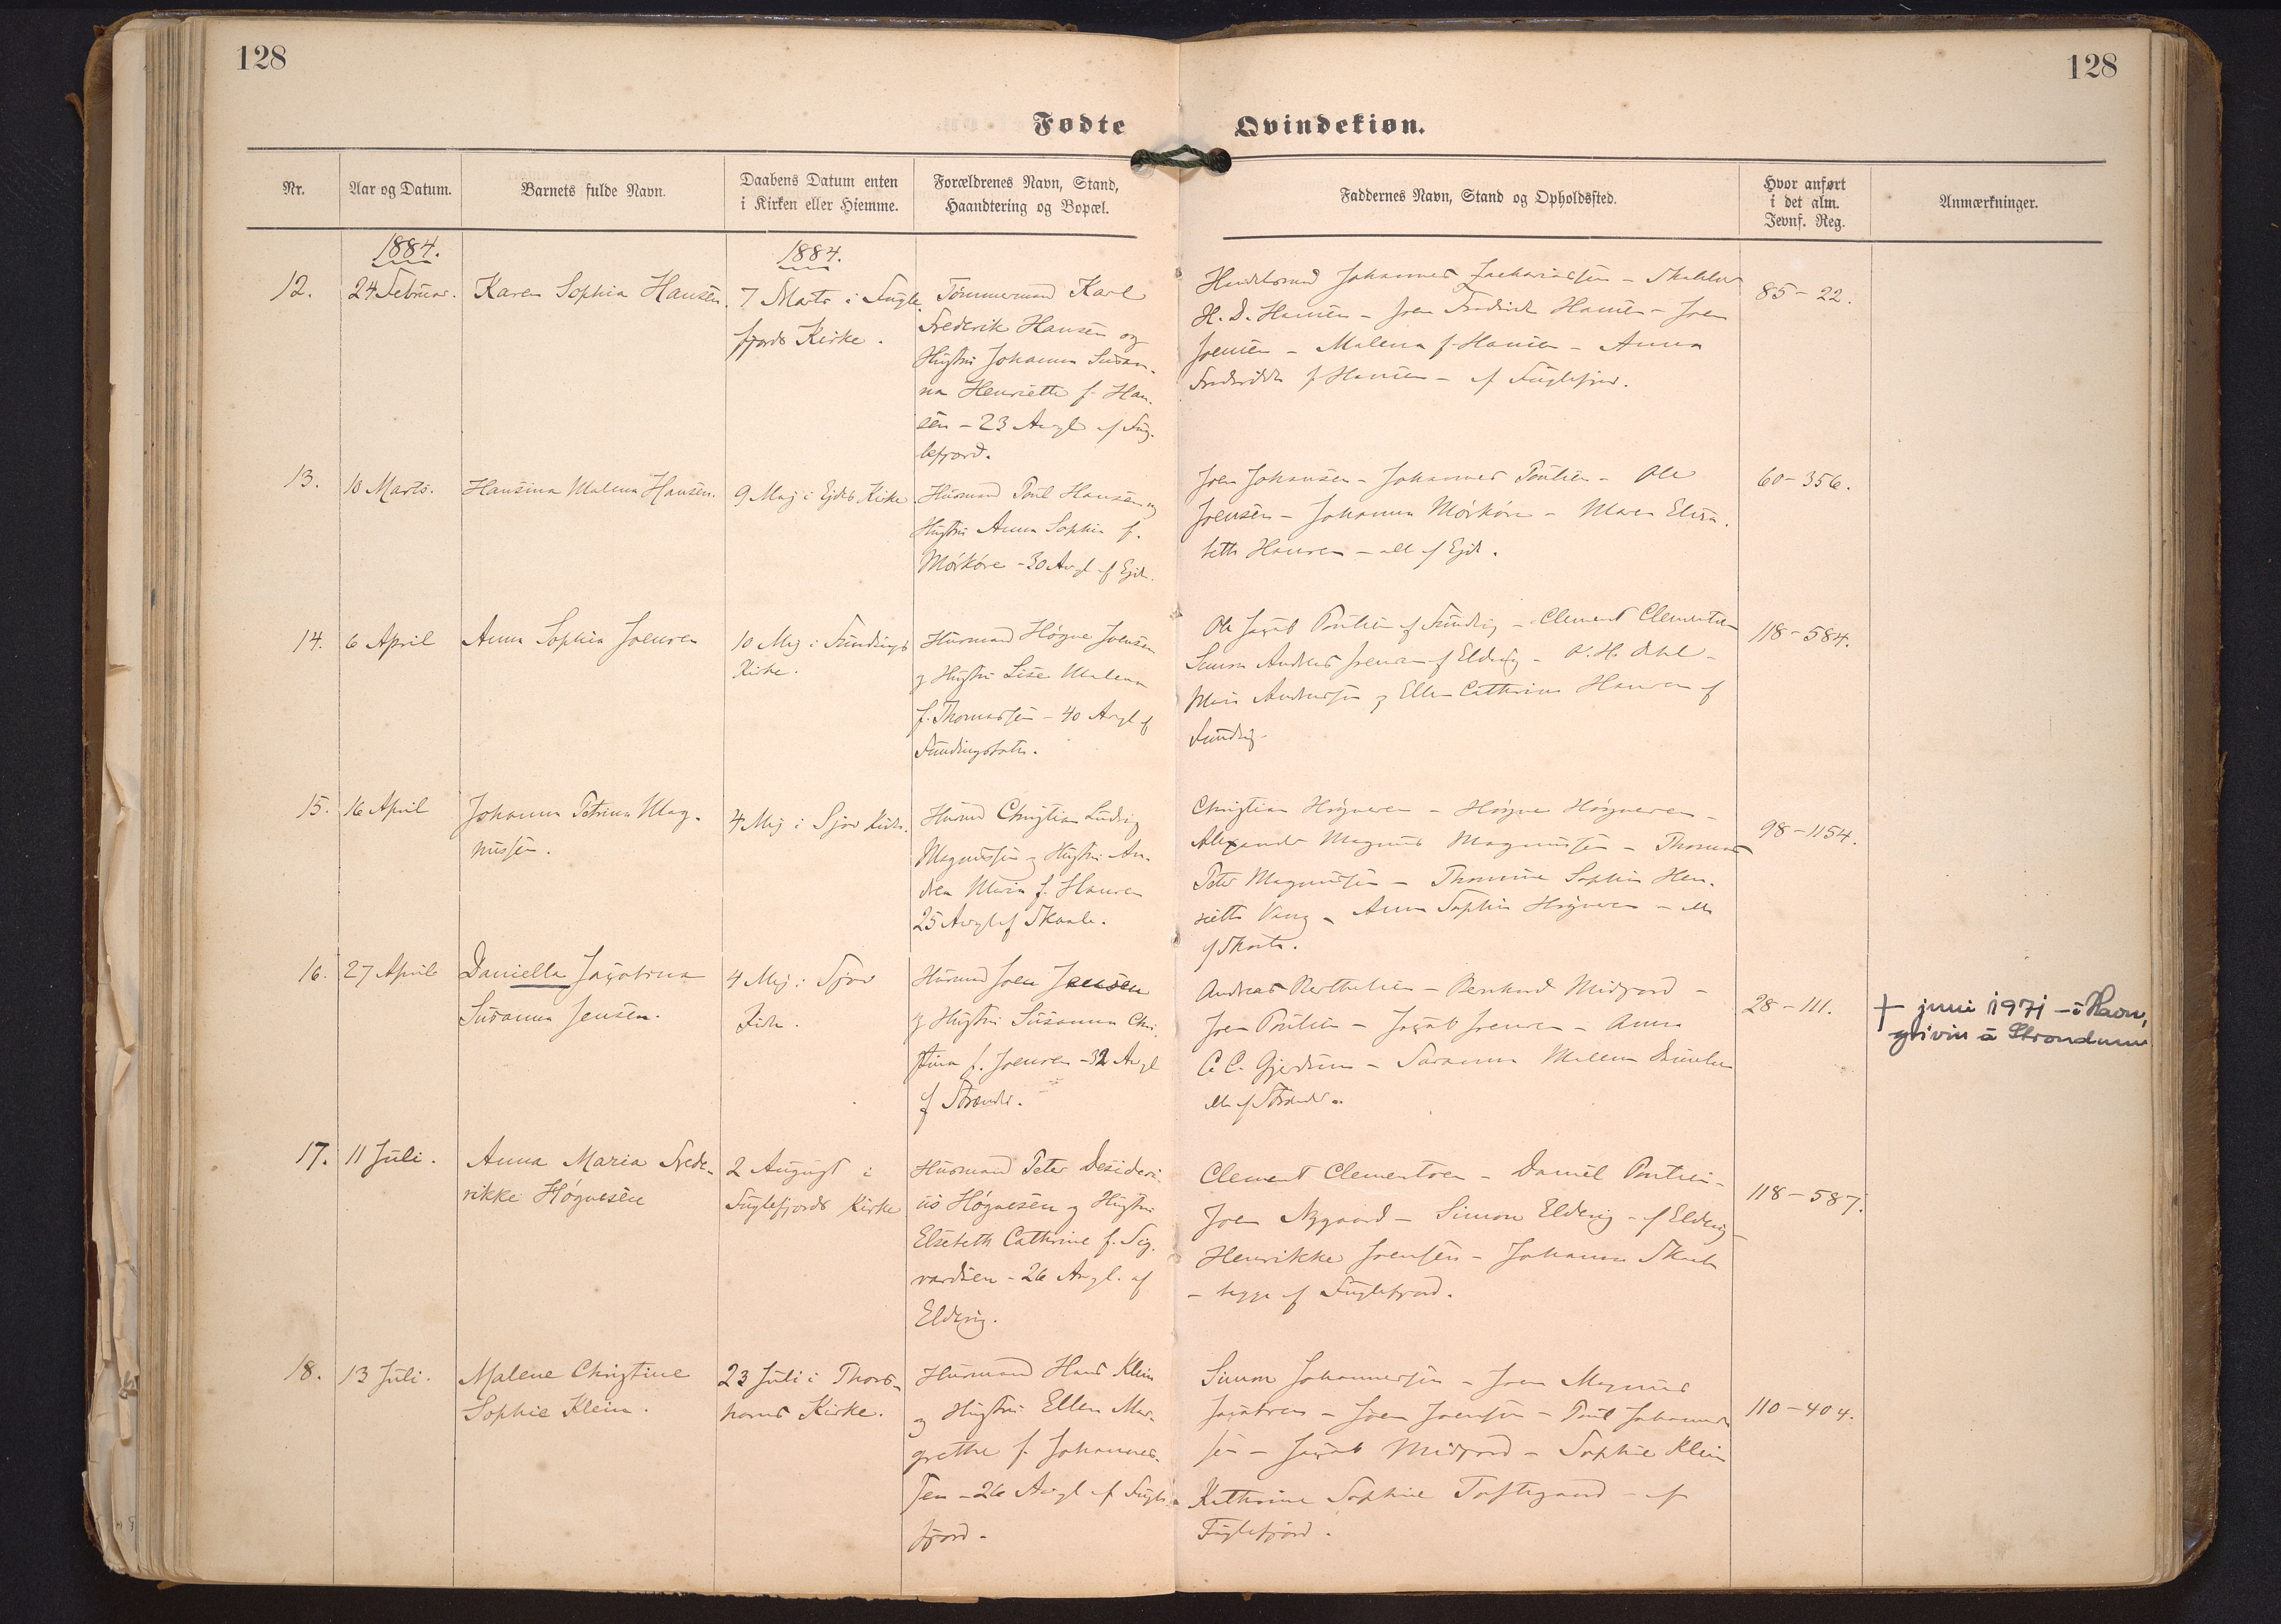 128
128
Fødte
Qvindekiøn.
Nr.
Aar og Datum.
Barnets fulde Navn.
Daabens Datum enten
i Kirken eller Hiemme.
Forældrenes Navn, Stand,
Haandtering og Bopæl.
Faddernes Navn, Stand og Opholdssted.
Hvor anført
i det alm.
Jevnf. Reg.
Anmærkninger.
1884.
1884.
12.
24 Februar.
Karen Sophia Hansen.
7 Marts i Fugle
fjords Kirke.
Tømmermand Karl
Frederik Hansen og
Hustru Johanna Susan-
na Henriette f. Han-
sen - 23 Aargl. af Fug-
lefjord.
Handelsmand Johannes Zachariassen -
H. D. Hansen - Joen Fredrik Hansen - Joen
Joensen - Malena f. Hansen - Anna
Frederikke f. Hansen - af Fuglefjord.
85-22.
13.
10 Marts.
Hansina Malena Hansen.
9 Maj i Ejde Kirke
Husmand Poul Hansen og
Hustru Anna Sophia f.
Mørköre - 30 Aargl. af Ejde.
Joen Johansen - Johannes Poulsen - Ole
Joensen - Johanna Mörköre - Maren Elisa-
beth Hansen - alle af Ejde.
60-356.
14.
6 April
Anna Sophia Joensen
10 Maj i Fundings
Kirke.
Husmand Høgne Joensen
og Hustru Lise Malena
f. Thomassen - 40 Aargl. af
Fundingsbotn.
Ole Jacob Poulsen af Funding - Clement Clementsen
Simon Andreas Joensen af Eldevig -
og Ellen Cathrine Hansen af
Funding.
118-584.
15.
16 April
Johanna Petrina Mag-
nussen.
4 Maj i Sjov Kirke.
Husmd Christian Ludvig
Magnussen og Hustru An-
drea Maria f. Hansen
25 Aargl. af Skaale.
Christian Högnesen - Högne Högnesen -
Alexander Magnus Magnussen - Thomas
Peter Magnussen - Thomine Sophie Hen-
riette Vang - Anna Sophia Högnesen - alle
af Skaale.
98-1154.
16.
27 April
Daniella Jacobina
Susanna Jensen.
4 Maj i Sjov
Kirke.
Husmand Joen Jensen
og Hustru Susanna Chri-
stina f. Joensen - 32 Aargl
af Strænder.
Andreas Berthelsen - Bernhard Midjord -
Joen Poulsen - Jacob Joensen - Anna
C. C. Gjerdum - Susanna Malena
alle af Strænder.
28-111.
+ juni 1971 - í Havn,
grivin á Strondum
17.
11 Juli.
Anna Maria Frede-
rikke Høgnesen
2 August i
Fuglefjords Kirke
Husmand Peter Desideri-
us Høgnesen og Hustru
Elsebeth Cathrine f. Sig-
vardsen - 26 Aargl. af
Eldevig.
Clement Clementsen - Daniel Poulsen -
Joen Nygaard - Simon Eldevig - af Eldevig -
Henrikke Joensen - Johanna Skaale
- begge af Fuglefjord.
118-587.
18.
13 Juli.
Malene Christine
Sophie Klein.
23 Juli i Thors-
havns Kirke.
Husmand Hans Klein
og Hustru Ellen Mar-
grethe f. Johannes-
sen - 26 Aargl. af Fugle-
fjord.
Simon Johannessen - Joen Magnus
Jacobsen - Joen Joensen - Poul Johannes-
sen - Jacob Midjord - Sophie Klein
Kathrine Sophie Toftegaard - af
Fuglefjord.
110-404.